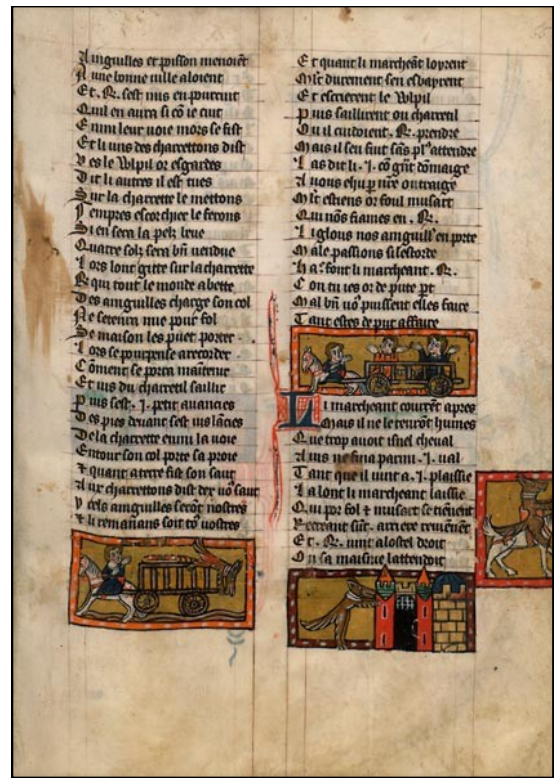 Anguilles et poisson menoiẽt
A une bonne uille aloient
Et . R . sest mis en pourcuit
Quil en aura si cõ ie cuit
Enmi leur uoie mors se fist
Et li uns des charretons dist
Ves le Wlpil or esgardes
Dit li autres il est tues
Sur la charrette le mettons
Jempres escorchier le ferons
Si en sera la pelz leue
Quatre solz sera bñ uendue
Lors lont gitte sur la charrette
R qui tout le monde abette
Des anguilles charge son col
Ne se tenra mie pour fol
Se maison les puet porter .
Lors se pourpense arecorder .
Cõment se porra maĩtenir
Et uis du charretil saillir
Puis sest . J . petit auancies
Des pies deuant sest eslancies
De la charrette enmi la uoie
Entour son col porte sa proie
⁊ quant aterre fist son saut
Aux charrettons dist der uõ saut
y cels anguilles serõt nostres
⁊ li remanans soit tõ uostres
Et quant li marcheãt loyrent
Mlt durement sen esbayrent
Et escrierent le Wlpil
Puis saillirent ou charretil
Ou il cuidoient . R . prendre
Mais il sen fuit sãs plꝰ attendre
Las dit li . J . cõ grñt dõmaige
A uous
Mlt estiens or foul musart
Qui nõs fiames en . R .
Li glous nos anguillꝰ en porte
Male passions silestorde
font li marcheant . R .
Con tu ies or de pute pt
Mal bñ uõꝰ puissent elles faire
Tant estes de put affaire
Li marcheant courrẽt apres
Mais il ne le tenrõt huimes
Que trop auoit isnel cheual
Ains ne fina parmi . J . ual
Tant que il uint a . J . plaissie
La lont li marcheant laissie
Qui por fol ⁊ musart se tiẽnent
Recreant sũt . arriere reuiẽnẽt
Et . R . uint alostel droit
Ou sa maisnie lattendoit